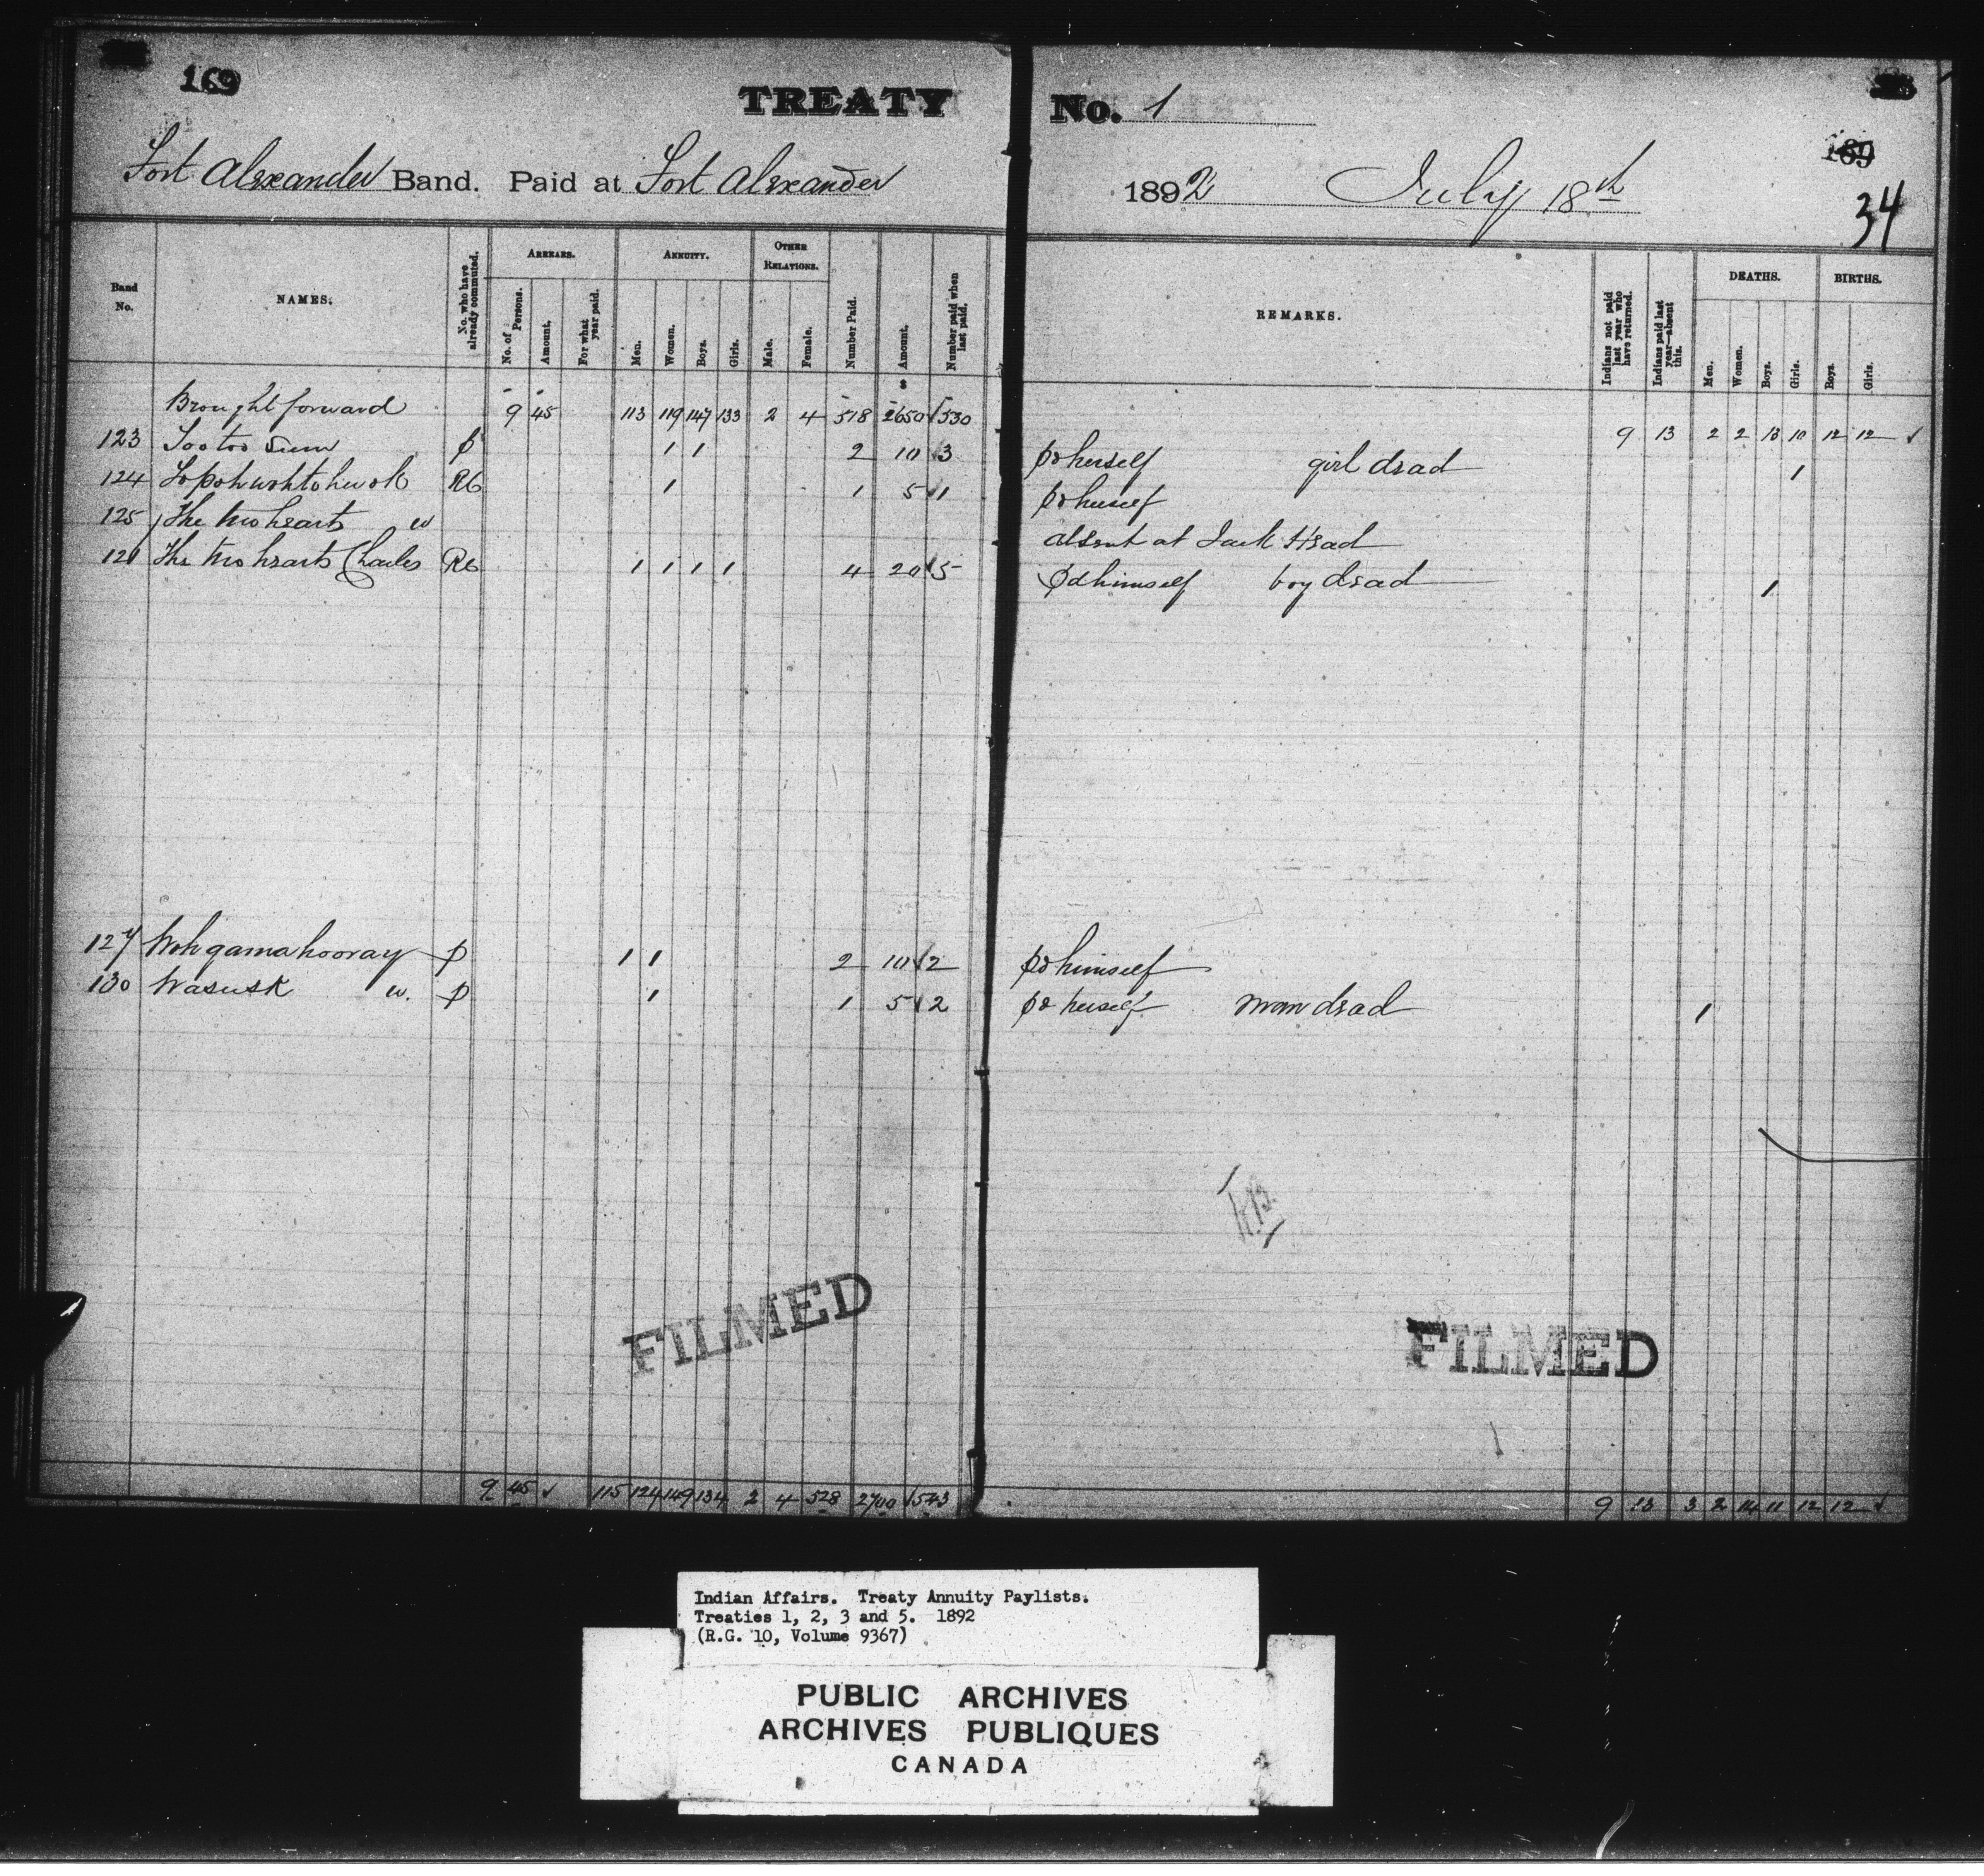 169
TREATY No. 1
189
34
Fort Alexander Band. Paid at Fort Alexander 1892 July 18th
Band No. NAMES. No. who have already commuted. ARREARS. No. of Persons. Amount. For what year paid. ANNUITY. Men. Women. Boys. Girls. OTHER RELATIONS. Male. Female. Number Paid. Amount. Number paid when last paid. REMARKS. Indians not paid last year who have returned. Indians paid last year—absent this. DEATHS. Men. Women. Boys. Girls. BIRTHS. Boys. Girls.
Brought forward 9 45 113 119 147 133 2 4 518 $ 2650 √ 530 9 13 2 2 13 10 12 12 √
123 p 1 1 2 10 √ 3 pd herself girl dead 1
124 RC 1 1 5 √ 1 pd herself
125 The two hearts w absent at Jack Head
The two hearts Charles RC 1 1 1 1 4 20 √ 5 pd himself boy dead 1
127 Wohgamahooray p 1 1 2 10 √ 2 pd himself
130 Wasusk w. p 1 1 5 √ 2 pd herself man dead 1
FILMED
FILMED
9 45 √ 115 124 149 134 2 4 528 2700 √ 543 9 13 3 2 14 11 12 12 √
Indian Affairs. Treaty Annuity Paylists.
Treaties 1, 2, 3 and 5. 1892
(R.G. 10, Volume 9367)
PUBLIC ARCHIVES
ARCHIVES PUBLIQUES
CANADA